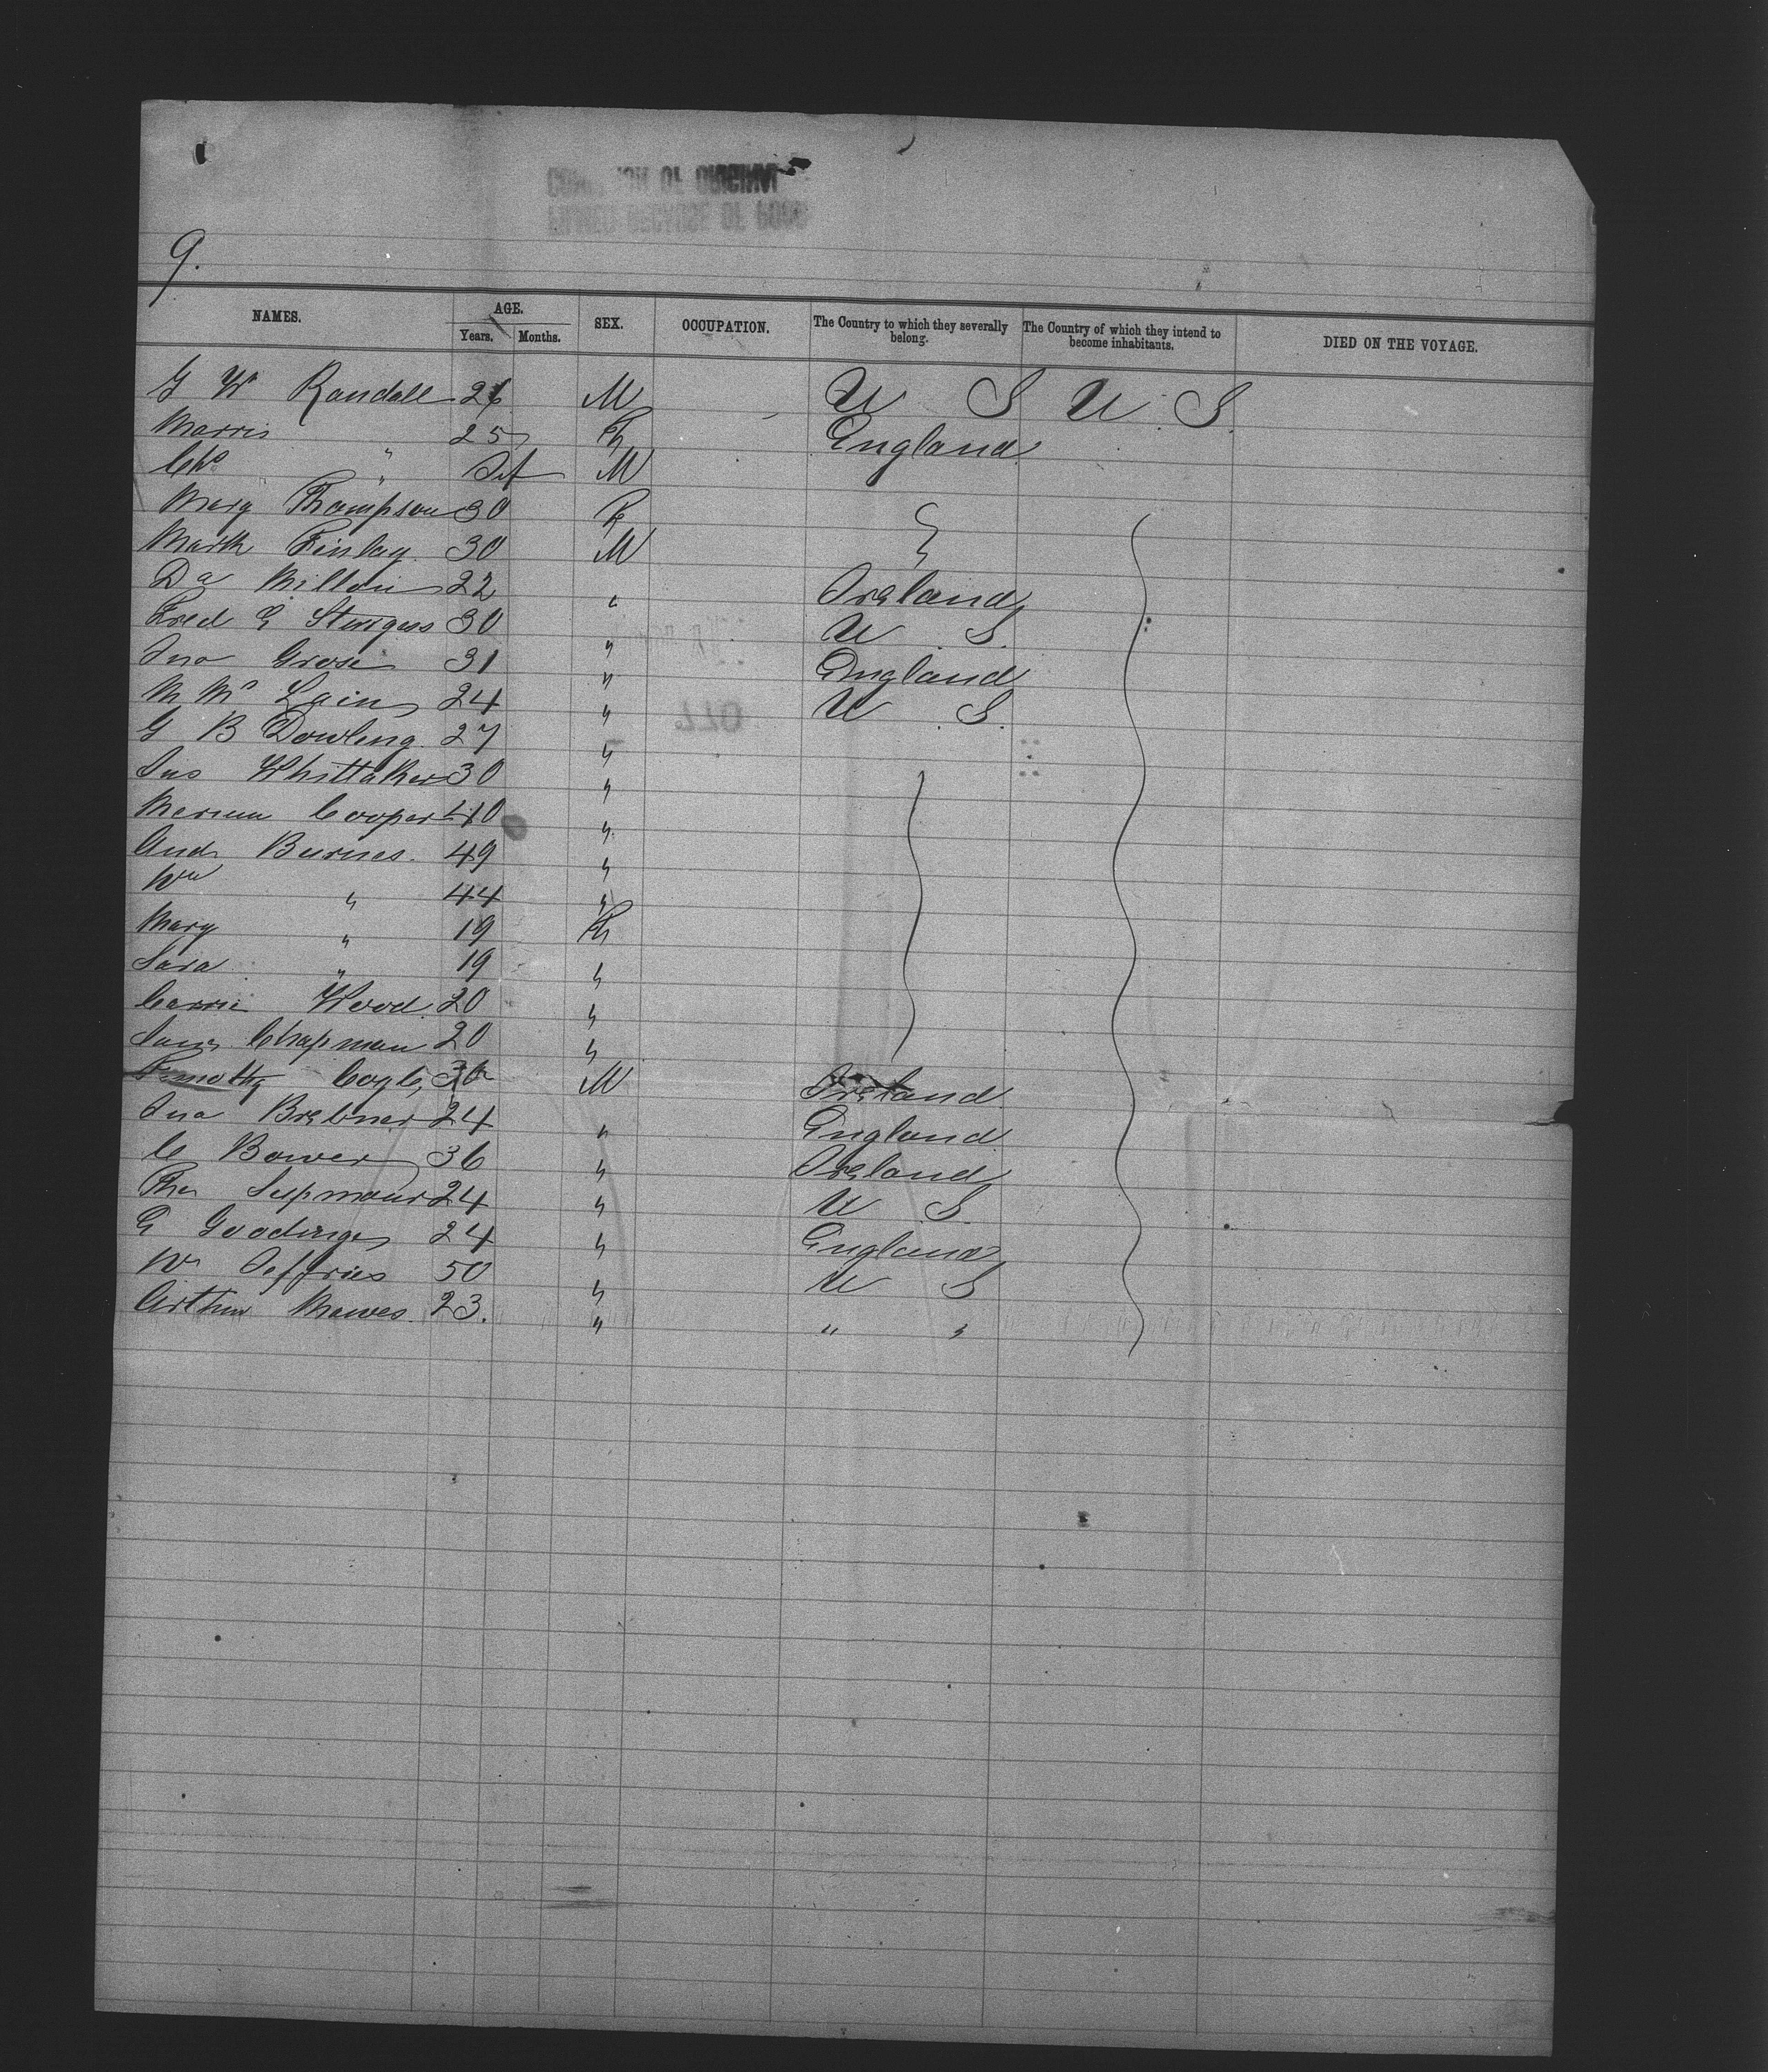 9.
NAMES. AGE. Years. Months. SEX. OCCUPATION. The Country to which they severally belong. The Country of which they intend to become inhabitants. DIED ON THE VOYAGE.
G W Randall 26 M U S U. S.
Morris " 25 F England
Chs " Inf M
Mary Thompson 30 F
Mark Finlay 30 M
Da 22 " Ireland
Fred G Sturgess 30 " U S.
Jno Grose 31 " England
M Mc Lain 24 " U S.
G B Dowling. 27 "
Jas Whittaker 30 "
Cooper 40 "
And. Burnes. 49 "
Wm " 44 "
Mary " 19 F
Sara " 19 "
Carrie Wood. 20 "
Chapman 20 "
Timothy Coyle, 30 M Ireland
Jno Brebner 24 " England
C Bower 36 " Ireland
24 " U S.
G Goodings 24 " England
Wm Jeffries 50 " U S
Arthur Mawes. 23. " " "